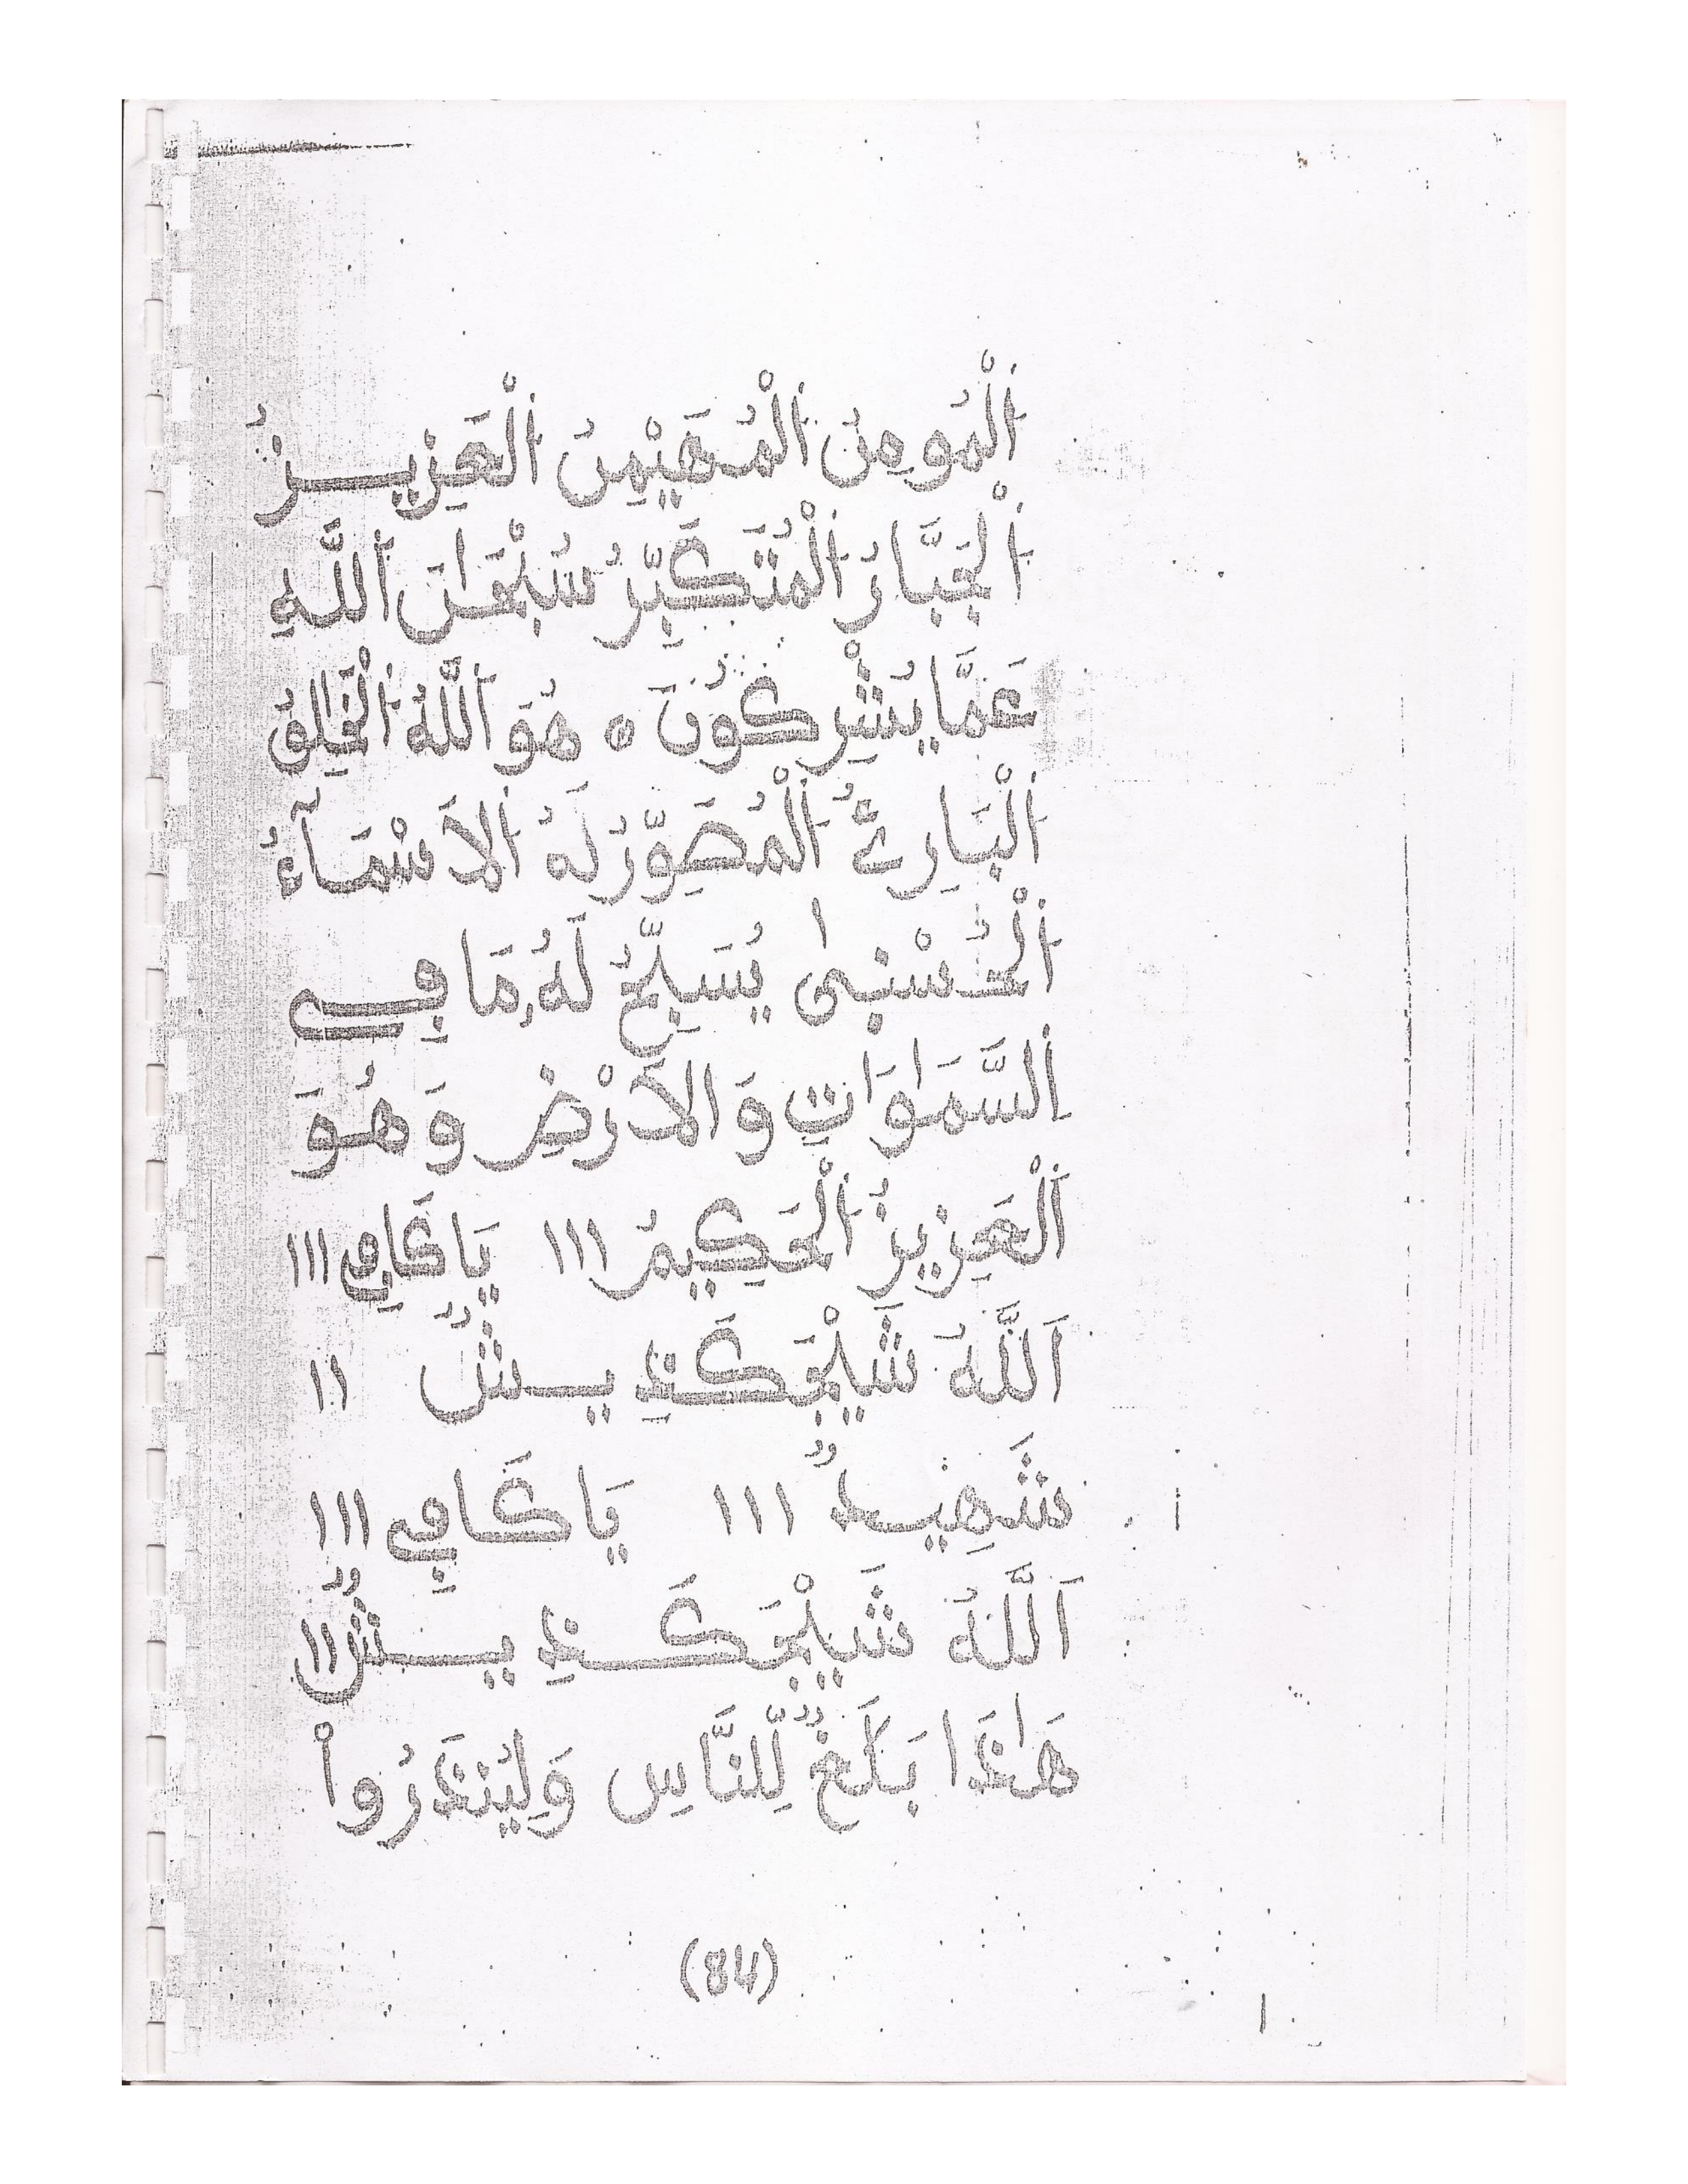 اَلْمُومِنُ اَلْمُهَيْمِنُ اَلْعَزِيزُ
اَلْجَبَّارُ اَلْمُتَكَبِّرُ سُبْحَانَ اَللَّهِ
عَمَّا يُشْرِكُونَ ٥ هُوَ اَللَّهُ اَلْخَالِقُ
اَلْبَارِئُ اَلْمُصَوِّرُ لَهُ اَلاَسْمَآءُ
اَلْحُسْنٰى يُسَبِّحُ لَهُ مَا فِي
اِلسَّمَاوَاتِ وَالاَرْضِ وَهُوَ
اَلْعَزِيزُ اَلْحَكِيمُ ١١١ يَا كَافِي ١١١
اَللَّهُ ١١
شَهِيدٌ ١١١ يَا كَافِي ١١١
اَللَّهُ ١١
هَاذَا بَلَغٌ لِّلنَّاسِ وَلِيُنذَرُواْ
(84)